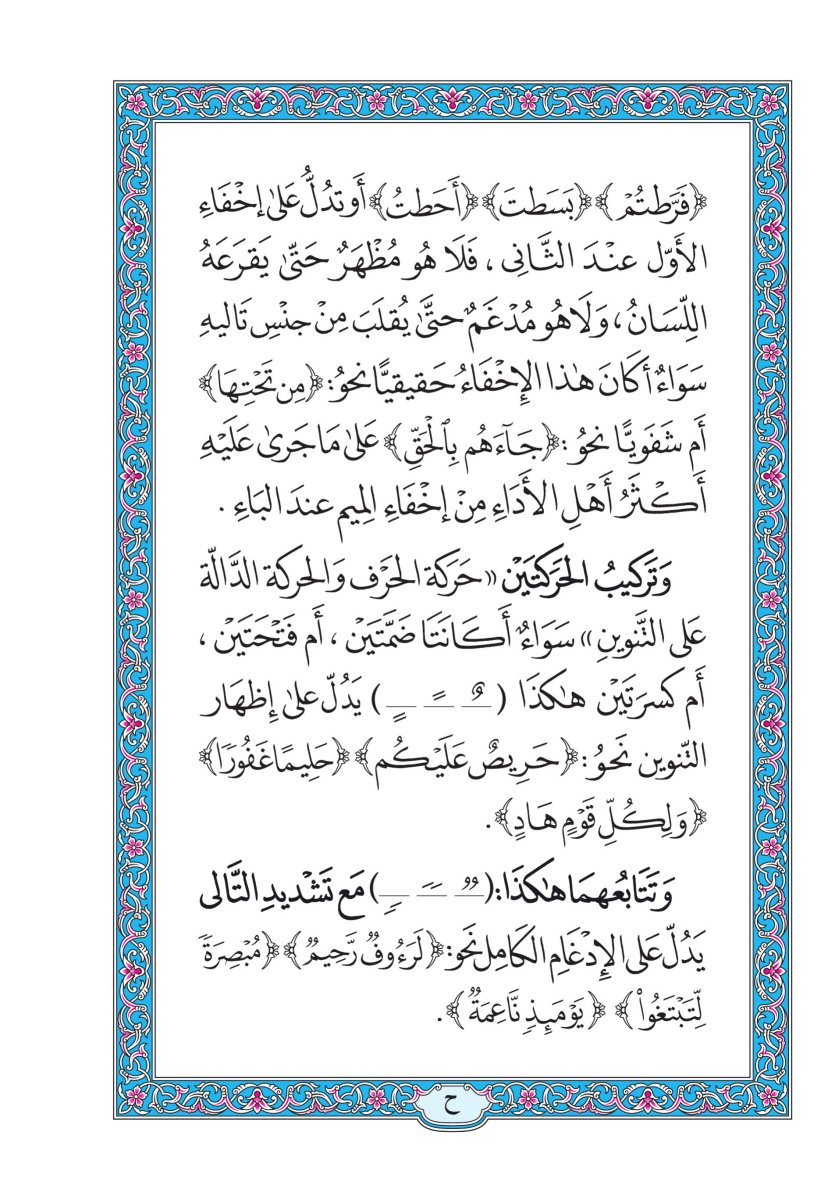 ﴿فَرَّطتُمْ﴾ ﴿بَسَطتَ﴾ ﴿أَحَطتُ﴾ أَو تدُلُّ عَلىٰ إخْفَاءِ
الأَوّل عنْدَ الثَّانِى ، فَلَا هُو مُظْهَرٌ حَتّىٰ يَقرَعَهُ
اللِّسَانُ، وَلَا هُو مُدْغَمٌ حتَّىٰ يُقلَبَ مِنْ جنْسِ تَاليهِ
سَوَاءٌ أكَانَ هٰذا الإِخْفَاءُ حَقيقيًّا نحوُ: ﴿مِن تَحْتِهَا﴾
أَم شَفَويًّا نحوُ : ﴿جَآءَهُم بِٱلْحَقِّ﴾ عَلىٰ مَا جَرىٰ عَلَيْهِ
أَكْثَرُ أَهْلِ الأَدَاءِ مِنْ إخْفَاءِ المِيم عندَ البَاءِ .
وَتَركيبُ الحَركتَيْن «حَرَكة الحَرْف وَالحركة الدَّالّة
عَلى التَّنوينِ» سَوَاءٌ أَكَانَتَا ضَمَّتَيْن ، أَم فَتْحَتَيْن ،
أَم كسرَتَيْن هٰكذَا ( ـٌـ ـًـ ـٍـ ) يَدُلّ علىٰ إِظهَار
التّنوين نَحوُ : ﴿حَرِيصٌ عَلَيْكُم﴾ ﴿حَلِيمًا غَفُورًا﴾
﴿وَلِكُلِّ قَوْمٍ هَادٍ﴾ .
وَتَتَابُعهمَا هٰكذَا: (ـࣱـ ـࣰـ ـࣲـ) مَع تَشْديدِ التَّالى
يَدُلّ عَلى الإِدْغَامِ الكَامِلِ نَحَو: ﴿لَرَءُوفࣱ رَّحِيمࣱ﴾ ﴿مُبْصِرَةࣰ
لِّتَبْتَغُوا۟﴾ ﴿يَوْمَئِذࣲ نَّاعِمَةࣱ﴾ .
ح